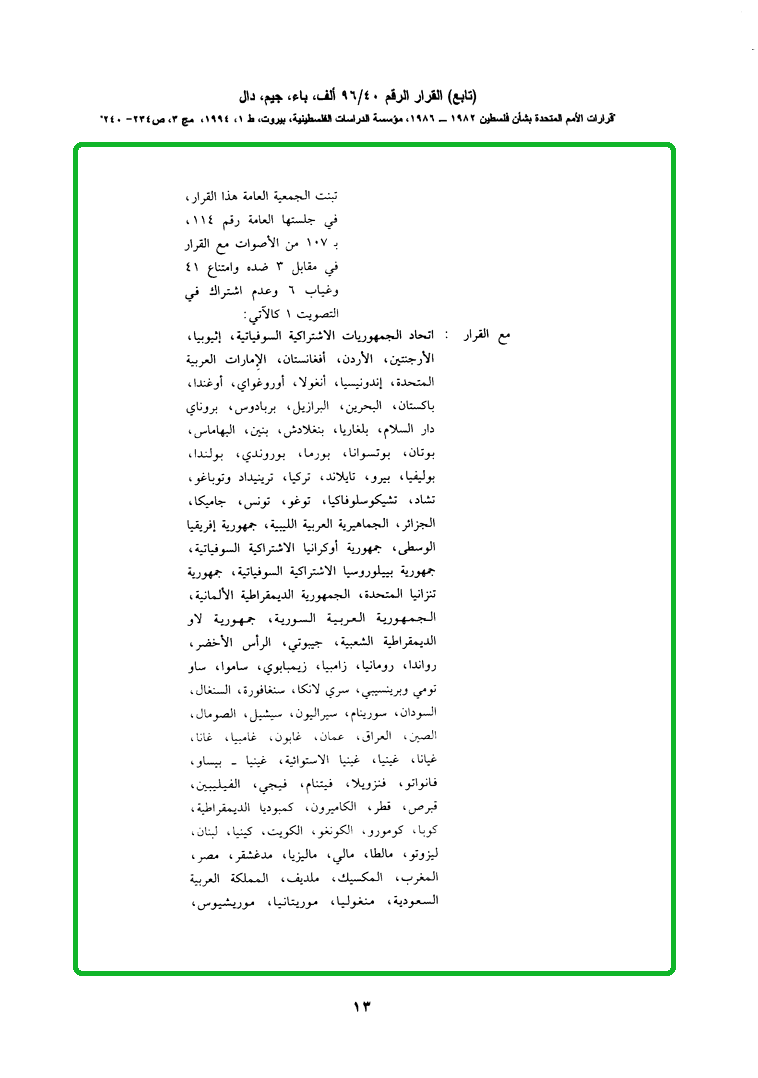 (تابع) القرار الرقم ٩٦/٤٠ ألف، باء، جيم، دال
"قرارات الأمم المتحدة بشأن فلسطين ١٩٨٢ ــ ١٩٨٦، مؤسسة الدراسات الفلسطينية، بيروت، ط ١، ١٩٩٤، مج ٣، ص٢٣٤- ٢٤٠"
تبنت الجمعية العامة هذا القرار،
في جلستها العامة رقم ١١٤،
بـ ١٠٧ من الأصوات مع القرار
في مقابل ٣ ضده وامتناع ٤١
وغياب ٦ وعدم اشتراك في
التصويت ١ كالآتي:
مع القرار : اتحاد الجمهوريات الاشتراكية السوفياتية، إثيوبيا،
الأرجنتين، الأردن، أفغانستان، الإمارات العربية
المتحدة، إندونيسيا، أنغولا، أوروغواي، أوغندا،
باكستان، البحرين، البرازيل، بربادوس، بروناي
دار السلام، بلغاريا، بنغلادش، بنين، البهاماس،
بوتان، بوتسوانا، بورما، بوروندي، بولندا،
بوليفيا، بيرو، تايلاند، تركيا، ترينيداد وتوباغو،
تشاد، تشيكوسلوفاكيا، توغو، تونس، جاميكا،
الجزائر، الجماهيرية العربية الليبية، جمهورية إفريقيا
الوسطى، جمهورية أوكرانيا الاشتراكية السوفياتية،
جمهورية بييلوروسيا الاشتراكية السوفياتية، جمهورية
تنزانيا المتحدة، الجمهورية الديمقراطية الألمانية،
الجمهورية العربية السورية، جمهورية لاو
الديمقراطية الشعبية، جيبوتي، الرأس الأخضر،
رواندا، رومانيا، زامبيا، زيمبابوي، ساموا، ساو
تومي وبرينسيبي، سري لانكا، سنغافورة، السنغال،
السودان، سورينام، سيراليون، سيشيل، الصومال،
الصين، العراق، عمان، غابون، غامبيا، غانا،
غيانا، غينيا، غينيا الاستوائية، غينيا ـ بيساو،
فانواتو، فنزويلا، فيتنام، فيجي، الفيليبين،
قبرص، قطر، الكاميرون، كمبوديا الديمقراطية،
كوبا، كومورو، الكونغو، الكويت، كينيا، لبنان،
ليزوتو، مالطا، مالي، ماليزيا، مدغشقر، مصر،
المغرب، المكسيك، ملديف، المملكة العربية
السعودية، منغوليا، موريتانيا، موريشيوس،
١٣